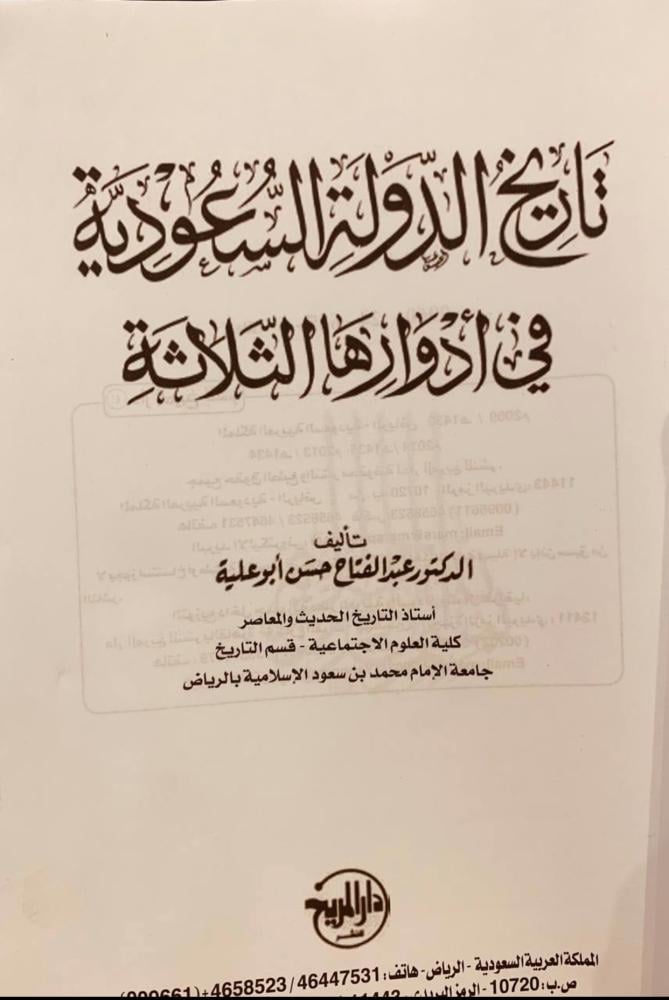 تَارِيخُ الدَّوْلَةِ السُّعُودِيَّةِ
فِي أَدْوَارِهَا الثَّلَاثَةِ
تأليف
الدكتور عبد الفتاح حسن أبو علية
أستاذ التاريخ الحديث والمعاصر
كلية العلوم الاجتماعية - قسم التاريخ
جامعة الإمام محمد بن سعود الإسلامية بالرياض
دار المريخ
للنشر
المملكة العربية السعودية - الرياض - هاتف: 46447531 / 4658523+(009661)
ص.ب: 10720 - الرمز البريدي: 11443